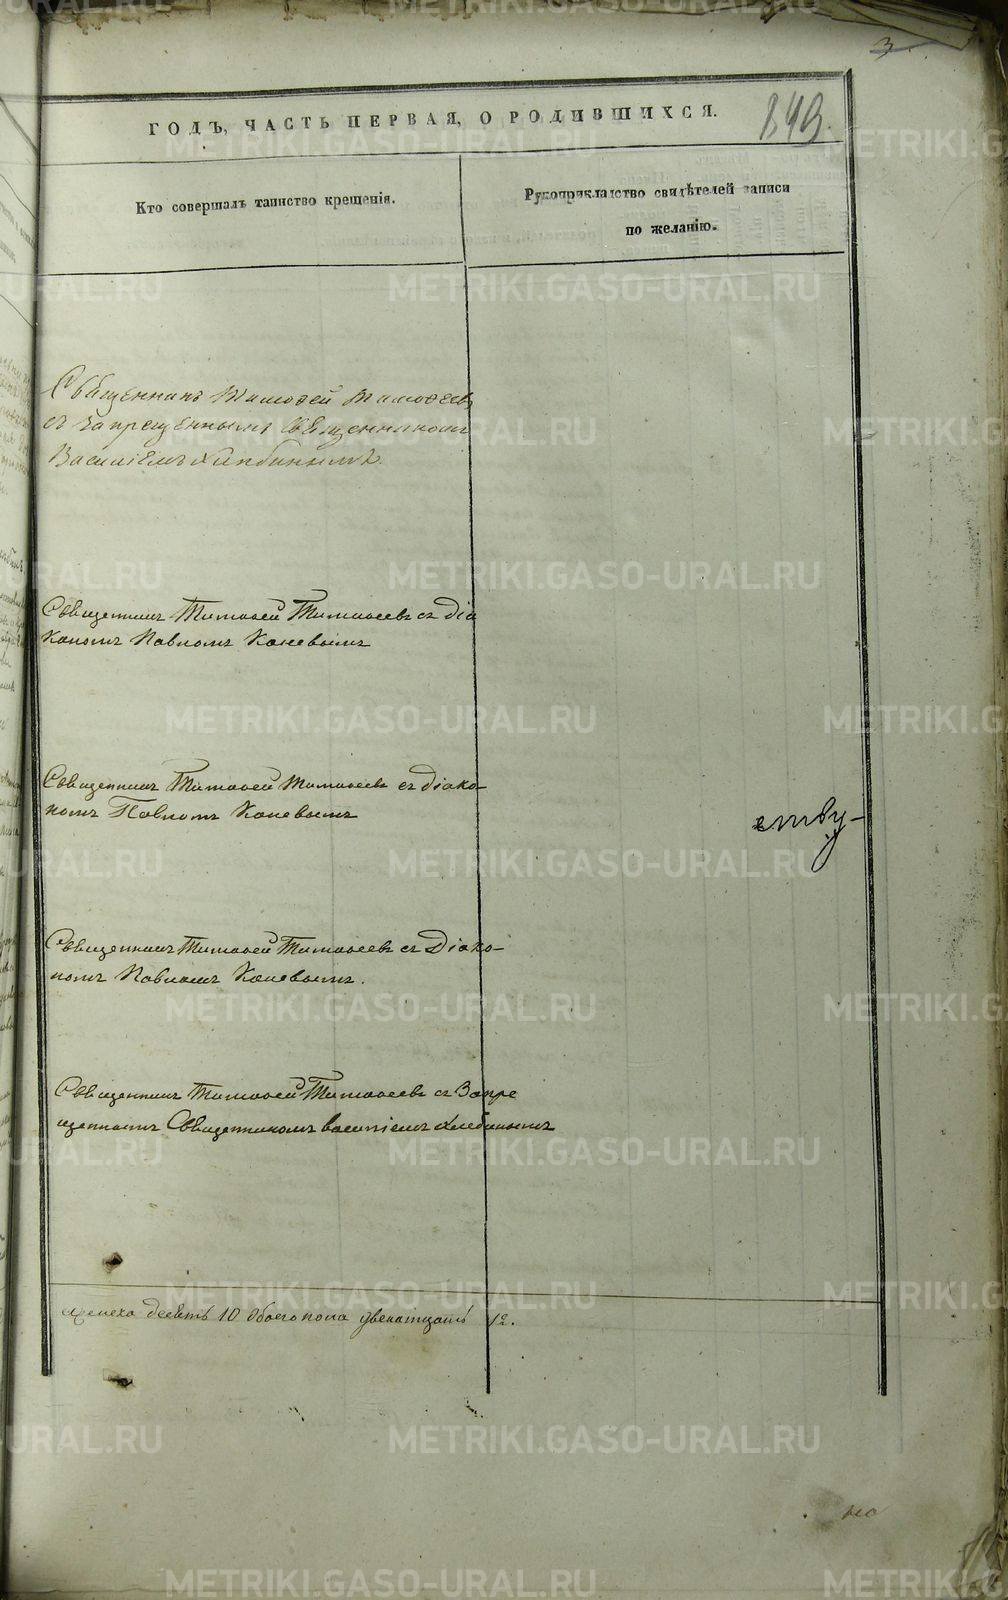 3
ГОДЪ, ЧАСТЬ ПЕРВАЯ, О РОДИВШИХСЯ.
849.
Кто совершалъ таинство крещенія.
Рукоприкладство свидѣтелей записи
по желанію.
Священникъ Тимофей Тимофеевъ
съ запрещеннымъ Священникомъ
Василіемъ Хлебинымъ.
Священникъ Тимофей Тимофеевъ съ Діа
кономъ Павломъ Каневымъ
Священникъ Тимофей Тимофеевъ съ Діако-
номъ Павломъ Каневымъ
Священникъ Тимофей Тимофеевъ съ Діако-
номъ Павломъ Каневымъ.
Священникъ Тимофей Тимофеевъ съ Запре
щеннымъ Священникомъ Василіемъ Хлебинымъ
десять 10 обоего пола двенатцать 12.
METRIKI.GASO-URAL.RU